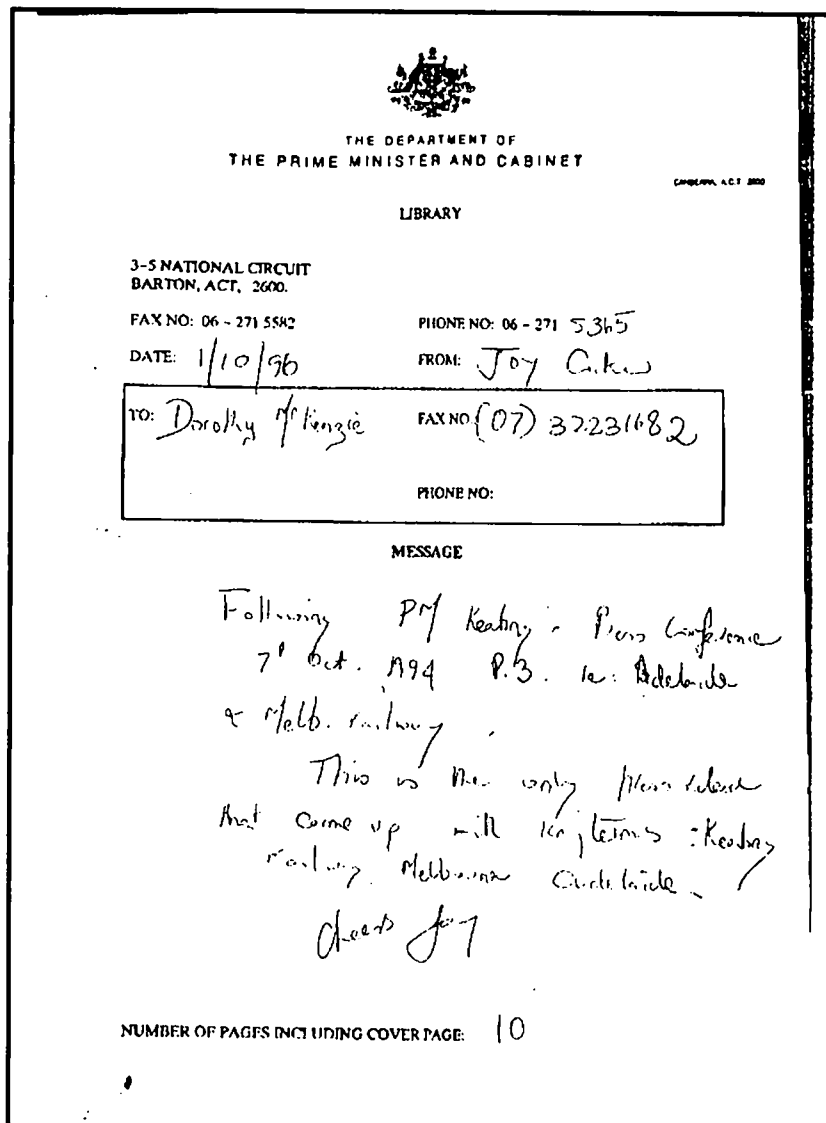 THE DEPARTMENT OF
THE PRIME MINISTER AND CABINET
CANBERRA, A.C.T. 2600
LIBRARY
3-5 NATIONAL CIRCUIT
BARTON, ACT, 2600.
FAX NO: 06 - 271 5582 PHONE NO: 06 - 271 5365
DATE: 1/10/96 FROM: Joy
TO: Dorothy McKenzie FAX NO: (07) 32231682
PHONE NO:
MESSAGE
Following PM Keating's Press Conference
7th Oct. 1994 P.3. re: Adelaide
& Melb. railway.
This is the only press release
that came up with terms: Keating
railway Melbourne Adelaide.
Cheers Joy
NUMBER OF PAGES INCLUDING COVER PAGE: 10